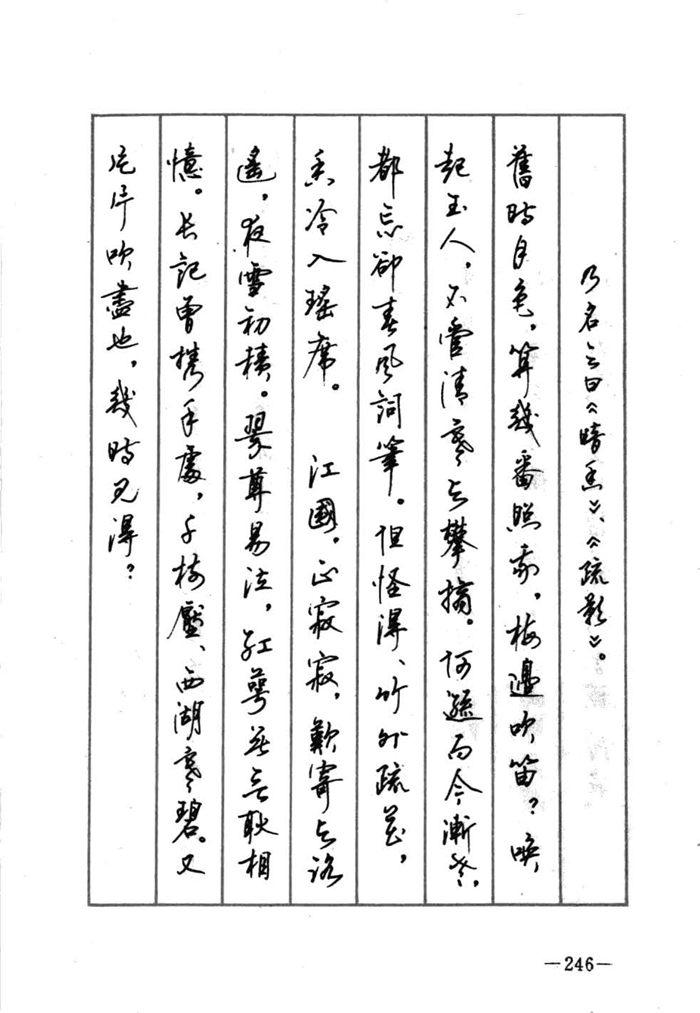 乃名之曰《暗香》、《疏影》。
舊時月色，算幾番照我，梅邊吹笛？喚
起玉人，不管清寒与攀摘。何遜而今漸老，
都忘卻春風詞筆。但怪得、竹外疏花，
香冷入瑤席。 江國，正寂寂，歎寄与路
遙，夜雪初積。翠尊易泣，紅萼无言耿相
憶。长記曾携手處，千樹壓、西湖寒碧。又
片片吹盡也，幾時见得？
—246—